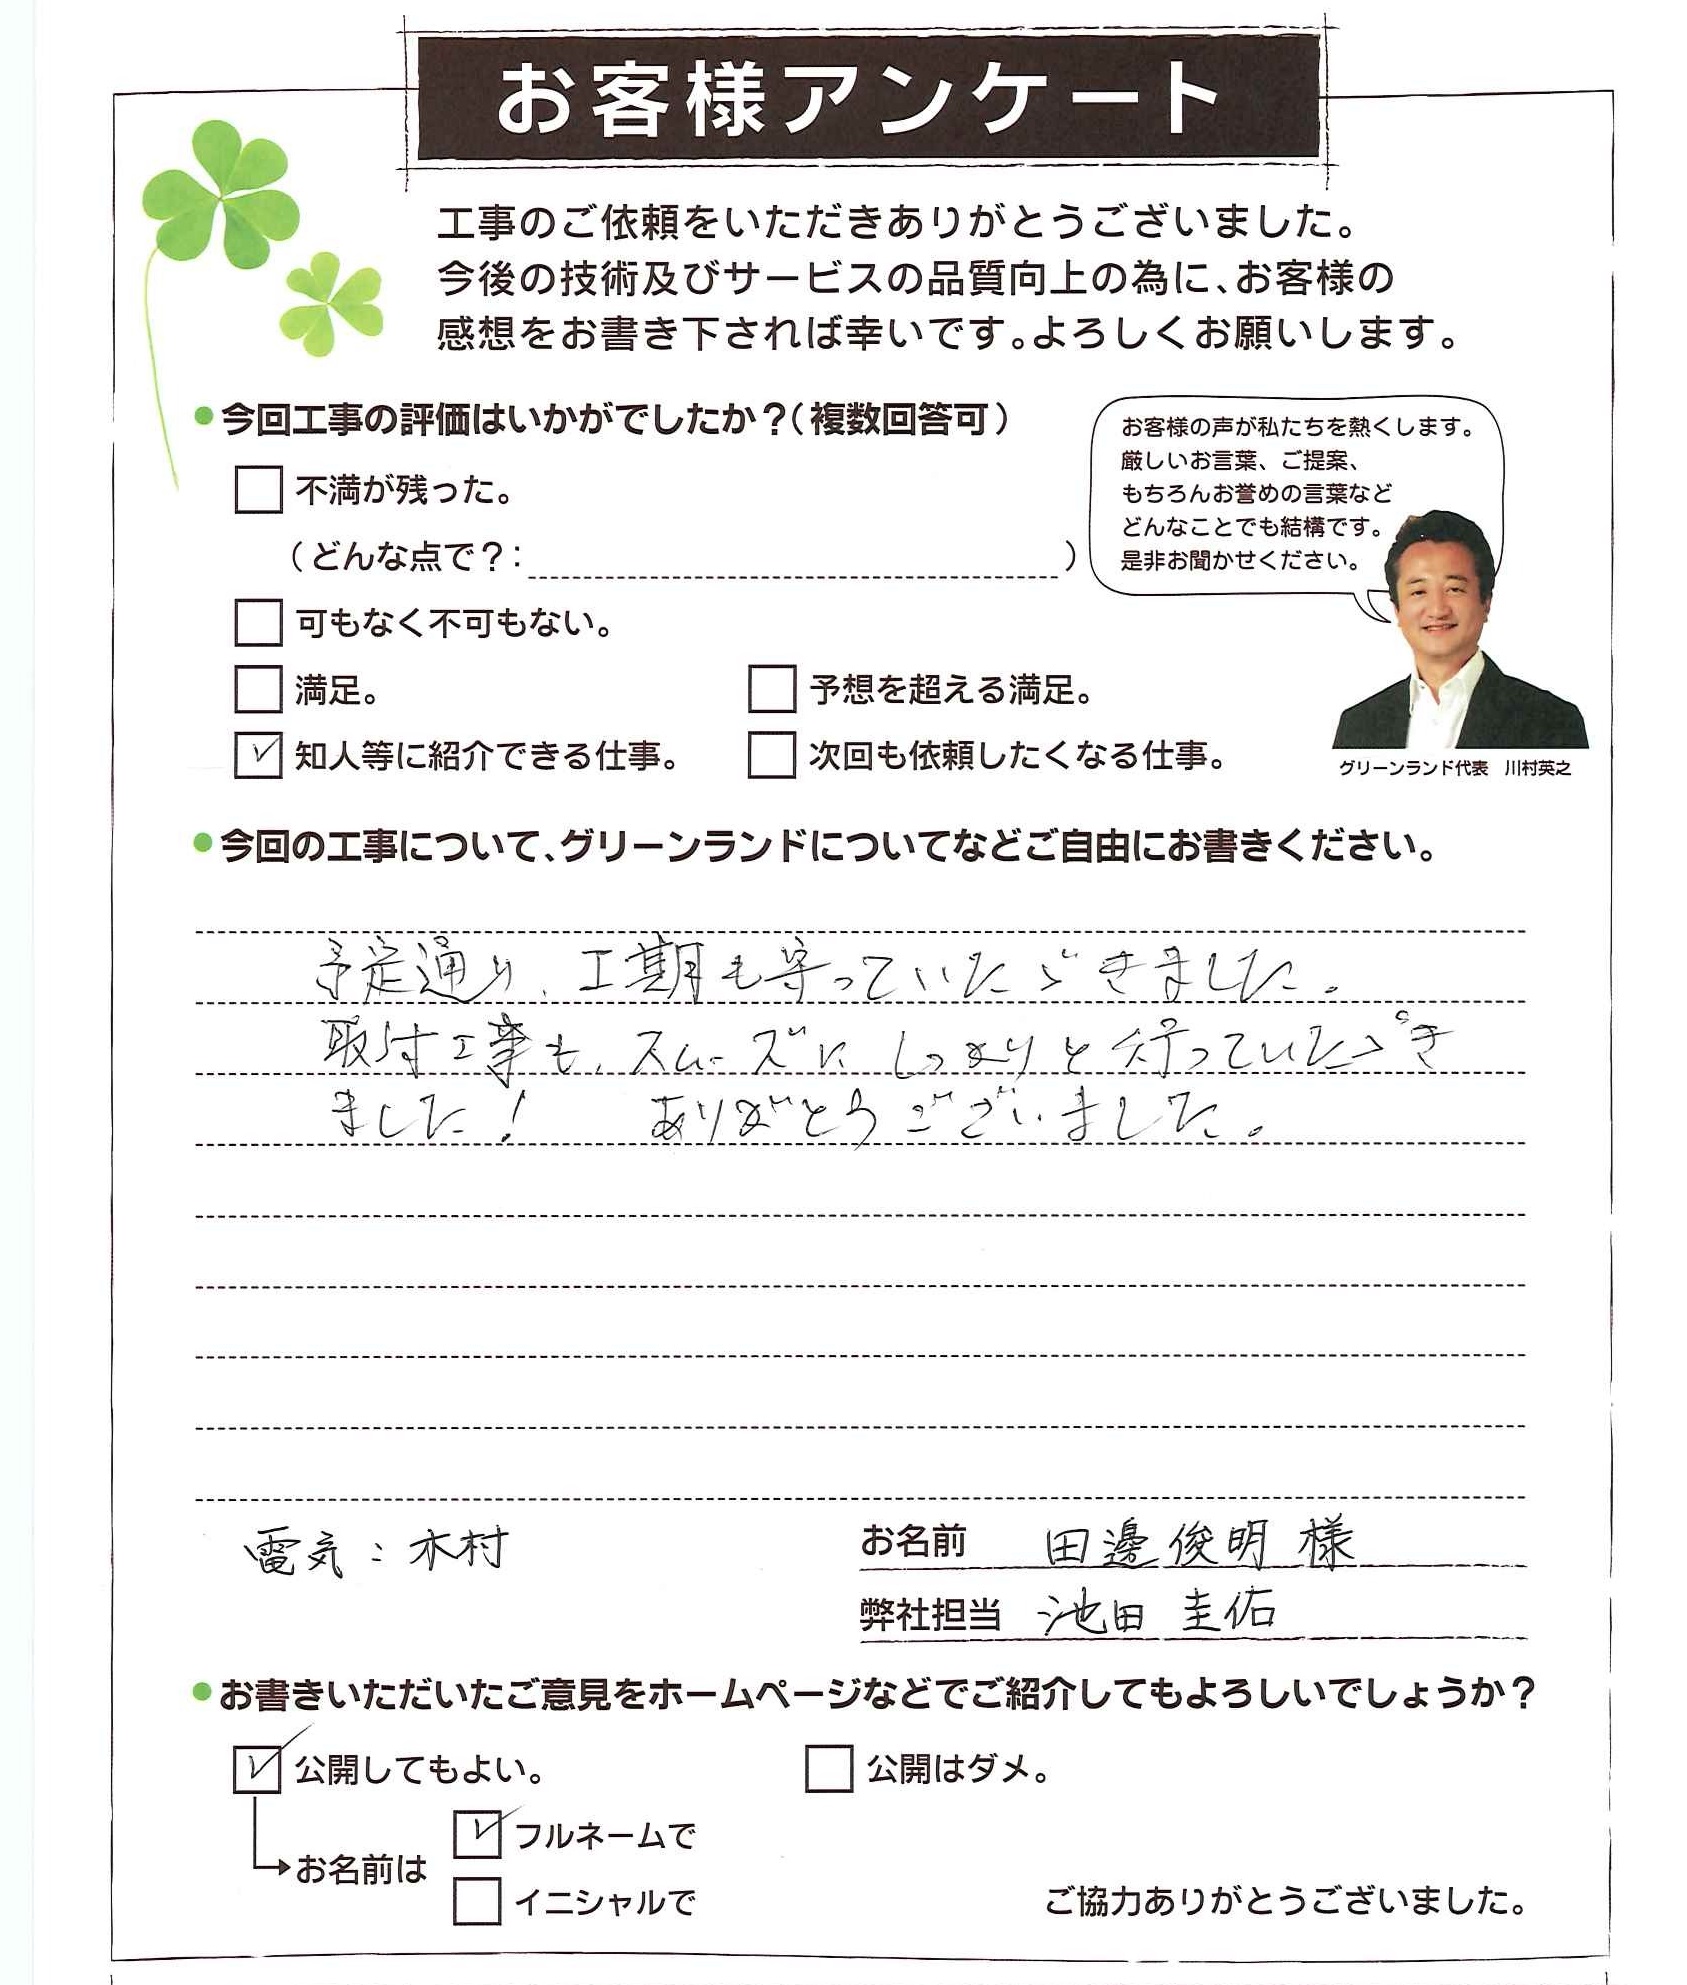 お客様アンケート
工事のご依頼をいただきありがとうございました。
今後の技術及びサービスの品質向上の為に、お客様の
感想をお書き下されば幸いです。よろしくお願いします。
●今回工事の評価はいかがでしたか？（複数回答可）
不満が残った。
（どんな点で？：　）
可もなく不可もない。
満足。
予想を超える満足。
知人等に紹介できる仕事。
次回も依頼したくなる仕事。
お客様の声が私たちを熱くします。
厳しいお言葉、ご提案、
もちろんお誉めの言葉など
どんなことでも結構です。
是非お聞かせください。
グリーンランド代表　川村英之
●今回の工事について、グリーンランドについてなどご自由にお書きください。
予定通り、工期も守っていただきました。
取付工事も、スムーズに しっかりと行っていただき
ました！　ありがとうございました。
電気：木村
お名前　田邊俊明 様
弊社担当　池田 圭佑
●お書きいただいたご意見をホームページなどでご紹介してもよろしいでしょうか？
公開してもよい。
公開はダメ。
お名前は
フルネームで
イニシャルで
ご協力ありがとうございました。